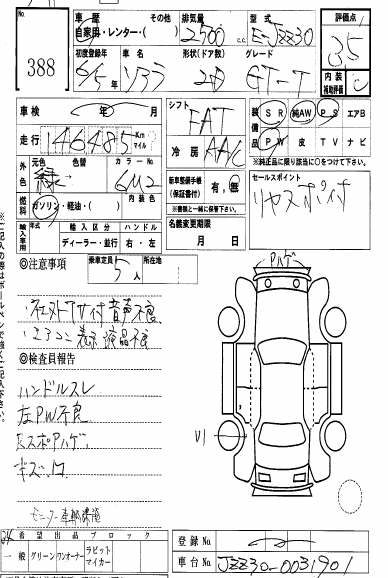 No.
388
車歴
自家用・レンター・( )
その他
排気量
2500 c.c.
型式
E-JZZ30
評価点
3.5
初度登録年
6/5年
車名
ソアラ
形状(ドア数)
2D
グレード
GT-T
内装
補助評価
C
車検 年 月
シフト
FAT
装備品
SR 純AW PS エアB
PW 皮 TV ナビ
※純正品に限り該当に○をつけて下さい。
走行
146485 Km マイル
冷房
AAC
外色
元色 色替 カラーNo
緑 6M2
新車整備手帳
(保証書付)
有,無
※書類と一緒に保管下さい。
セールスポイント
リヤスポ付
燃料
ガソリン・軽油・( )
内装色
輸入車用
年式
輸入区分
ハンドル
ディーラー・並行
右・左
名義変更期限
月 日
◎注意事項
乗車定員
5人
所在地
音声不良
エアコン表示液晶不良
◎検査員報告
ハンドルスレ
左PW不良
RスポPハゲ
Pハゲ
U1
希望出品ブロック
一般
グリーン
ワンオーナー
ラビット
マイカー
登録No
車台No.
JZZ30-0031901